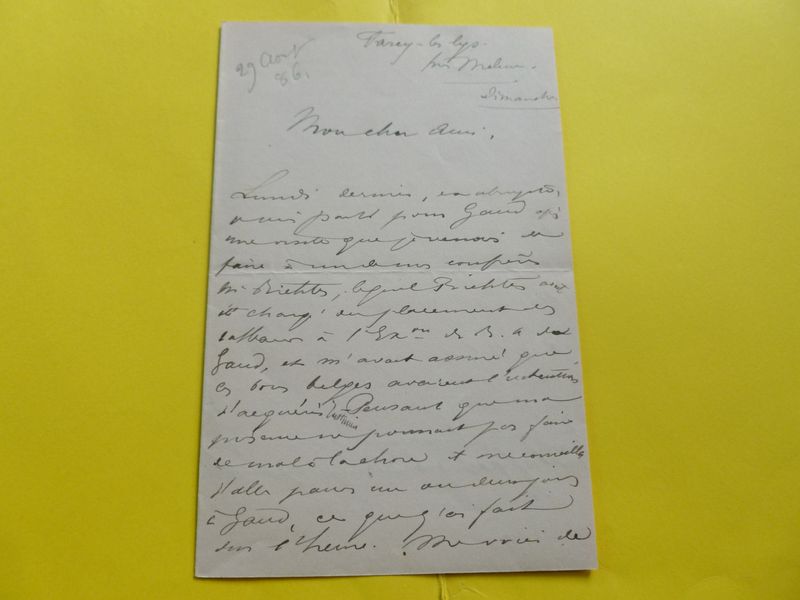 29 Août
86.
Farcy-les-lys
près Melun.
Dimanche
Mon cher Ami,
Lundi dernier, ex abrupto,
je suis parti pour Gand après
une visite que je venais de
faire à un de mes confrères
Mr lequel avait
été chargé du placement des
tableaux à l'Exon de B. A de
Gand, et m'avait assuré que
ces bons belges avaient l'intention
d'acquérir Pensant que ma
présence ne pourrait pas faire
de mal à la chose il me conseilla
d'aller passer un ou deux jours
à Gand, ce que j'ai fait
sur l'heure. Me voici de